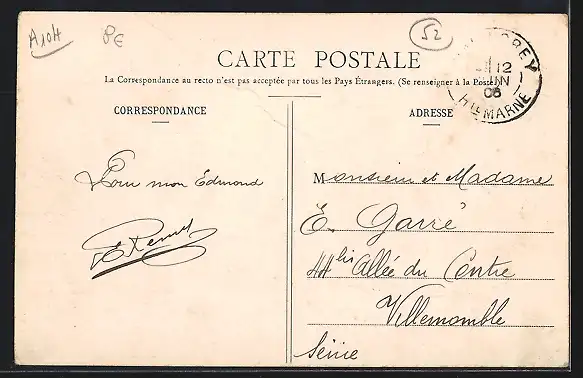 A104
PE
52
CARTE POSTALE
La Correspondance au recto n'est pas acceptée par tous les Pays Étrangers. (Se renseigner à la Poste)
REY
12
JUIN
06
HTE MARNE
CORRESPONDANCE
ADRESSE
Pour mon Edmond
Monsieur et Madame
E. Garré
44 bis Allée du Centre
Villemomble
Seine